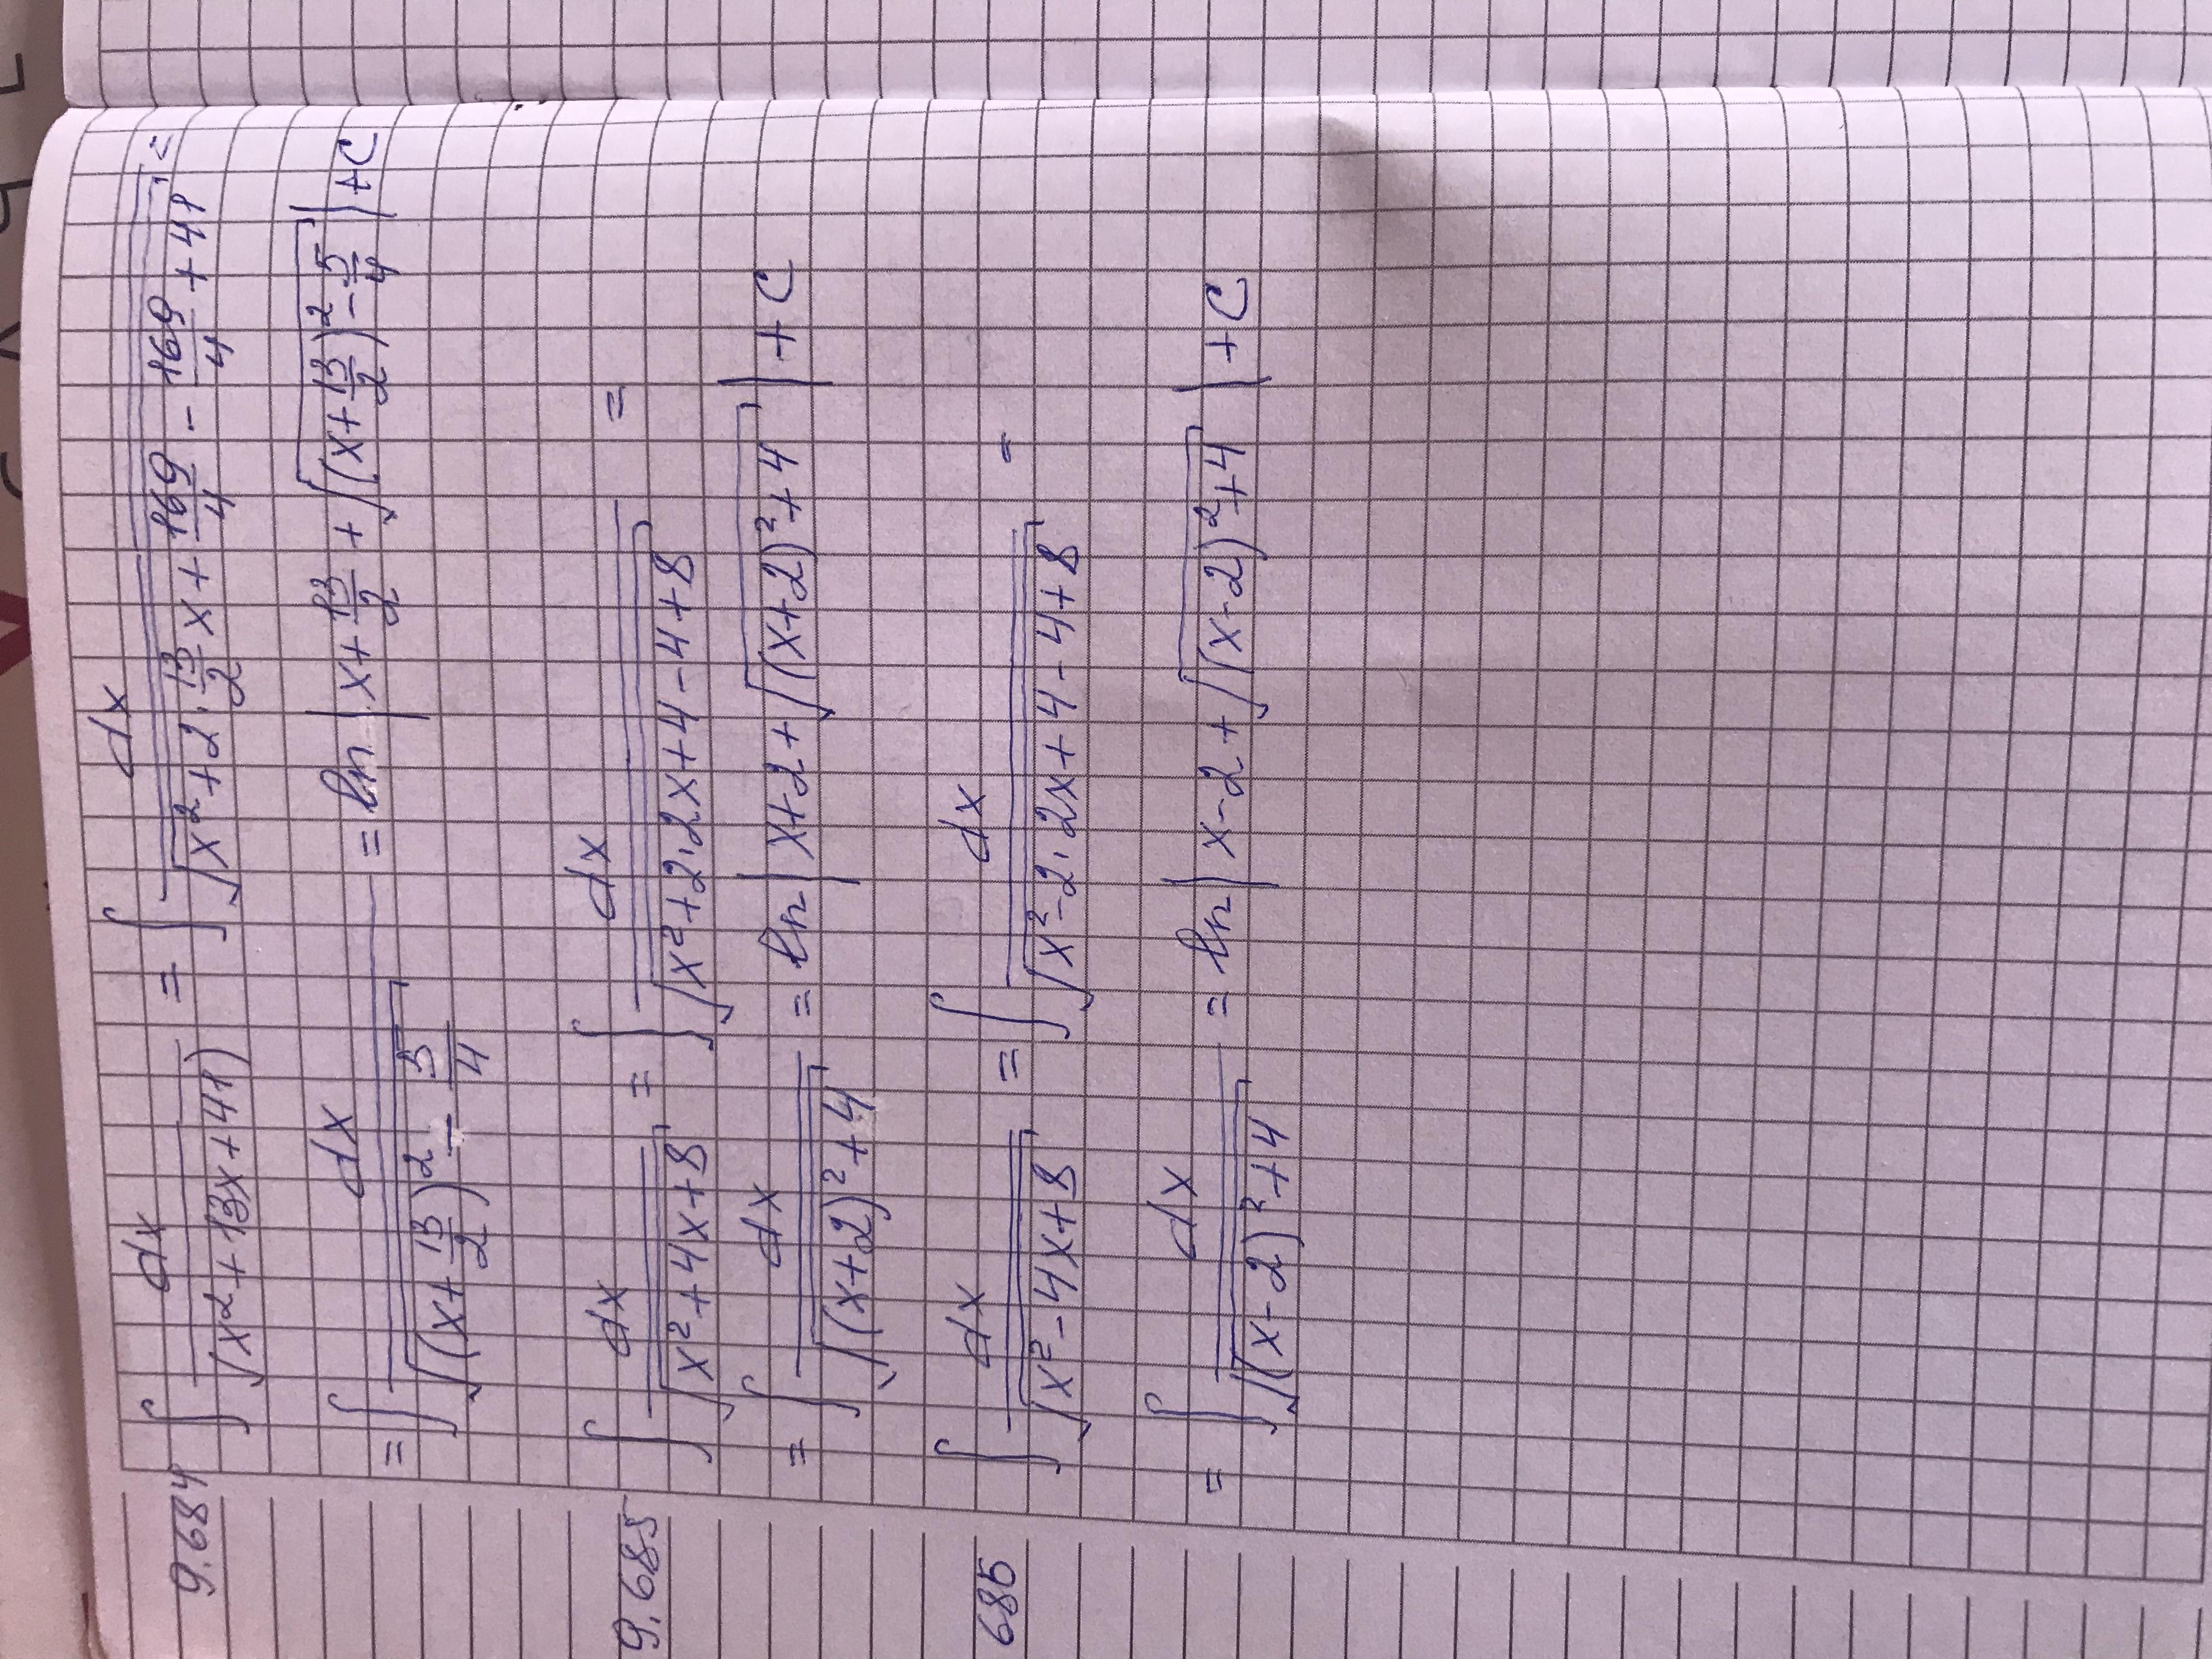 9.684 ∫ dx/√(x²+13x+41) = ∫ dx/√(x²+2·13/2 x+169/4 - 169/4 + 41) =
= ∫ dx/√((x+13/2)² - 5/4) = ln |x+13/2 + √((x+13/2)² - 5/4)| + C
9.685 ∫ dx/√(x²+4x+8) = ∫ dx/√(x²+2·2x+4-4+8) =
= ∫ dx/√((x+2)²+4) = ln |x+2+√((x+2)²+4)| + C
685 ∫ dx/√(x²-4x+8) = ∫ dx/√(x²-2·2x+4-4+8) =
= ∫ dx/√((x-2)²+4) = ln |x-2+√((x-2)²+4)| + C